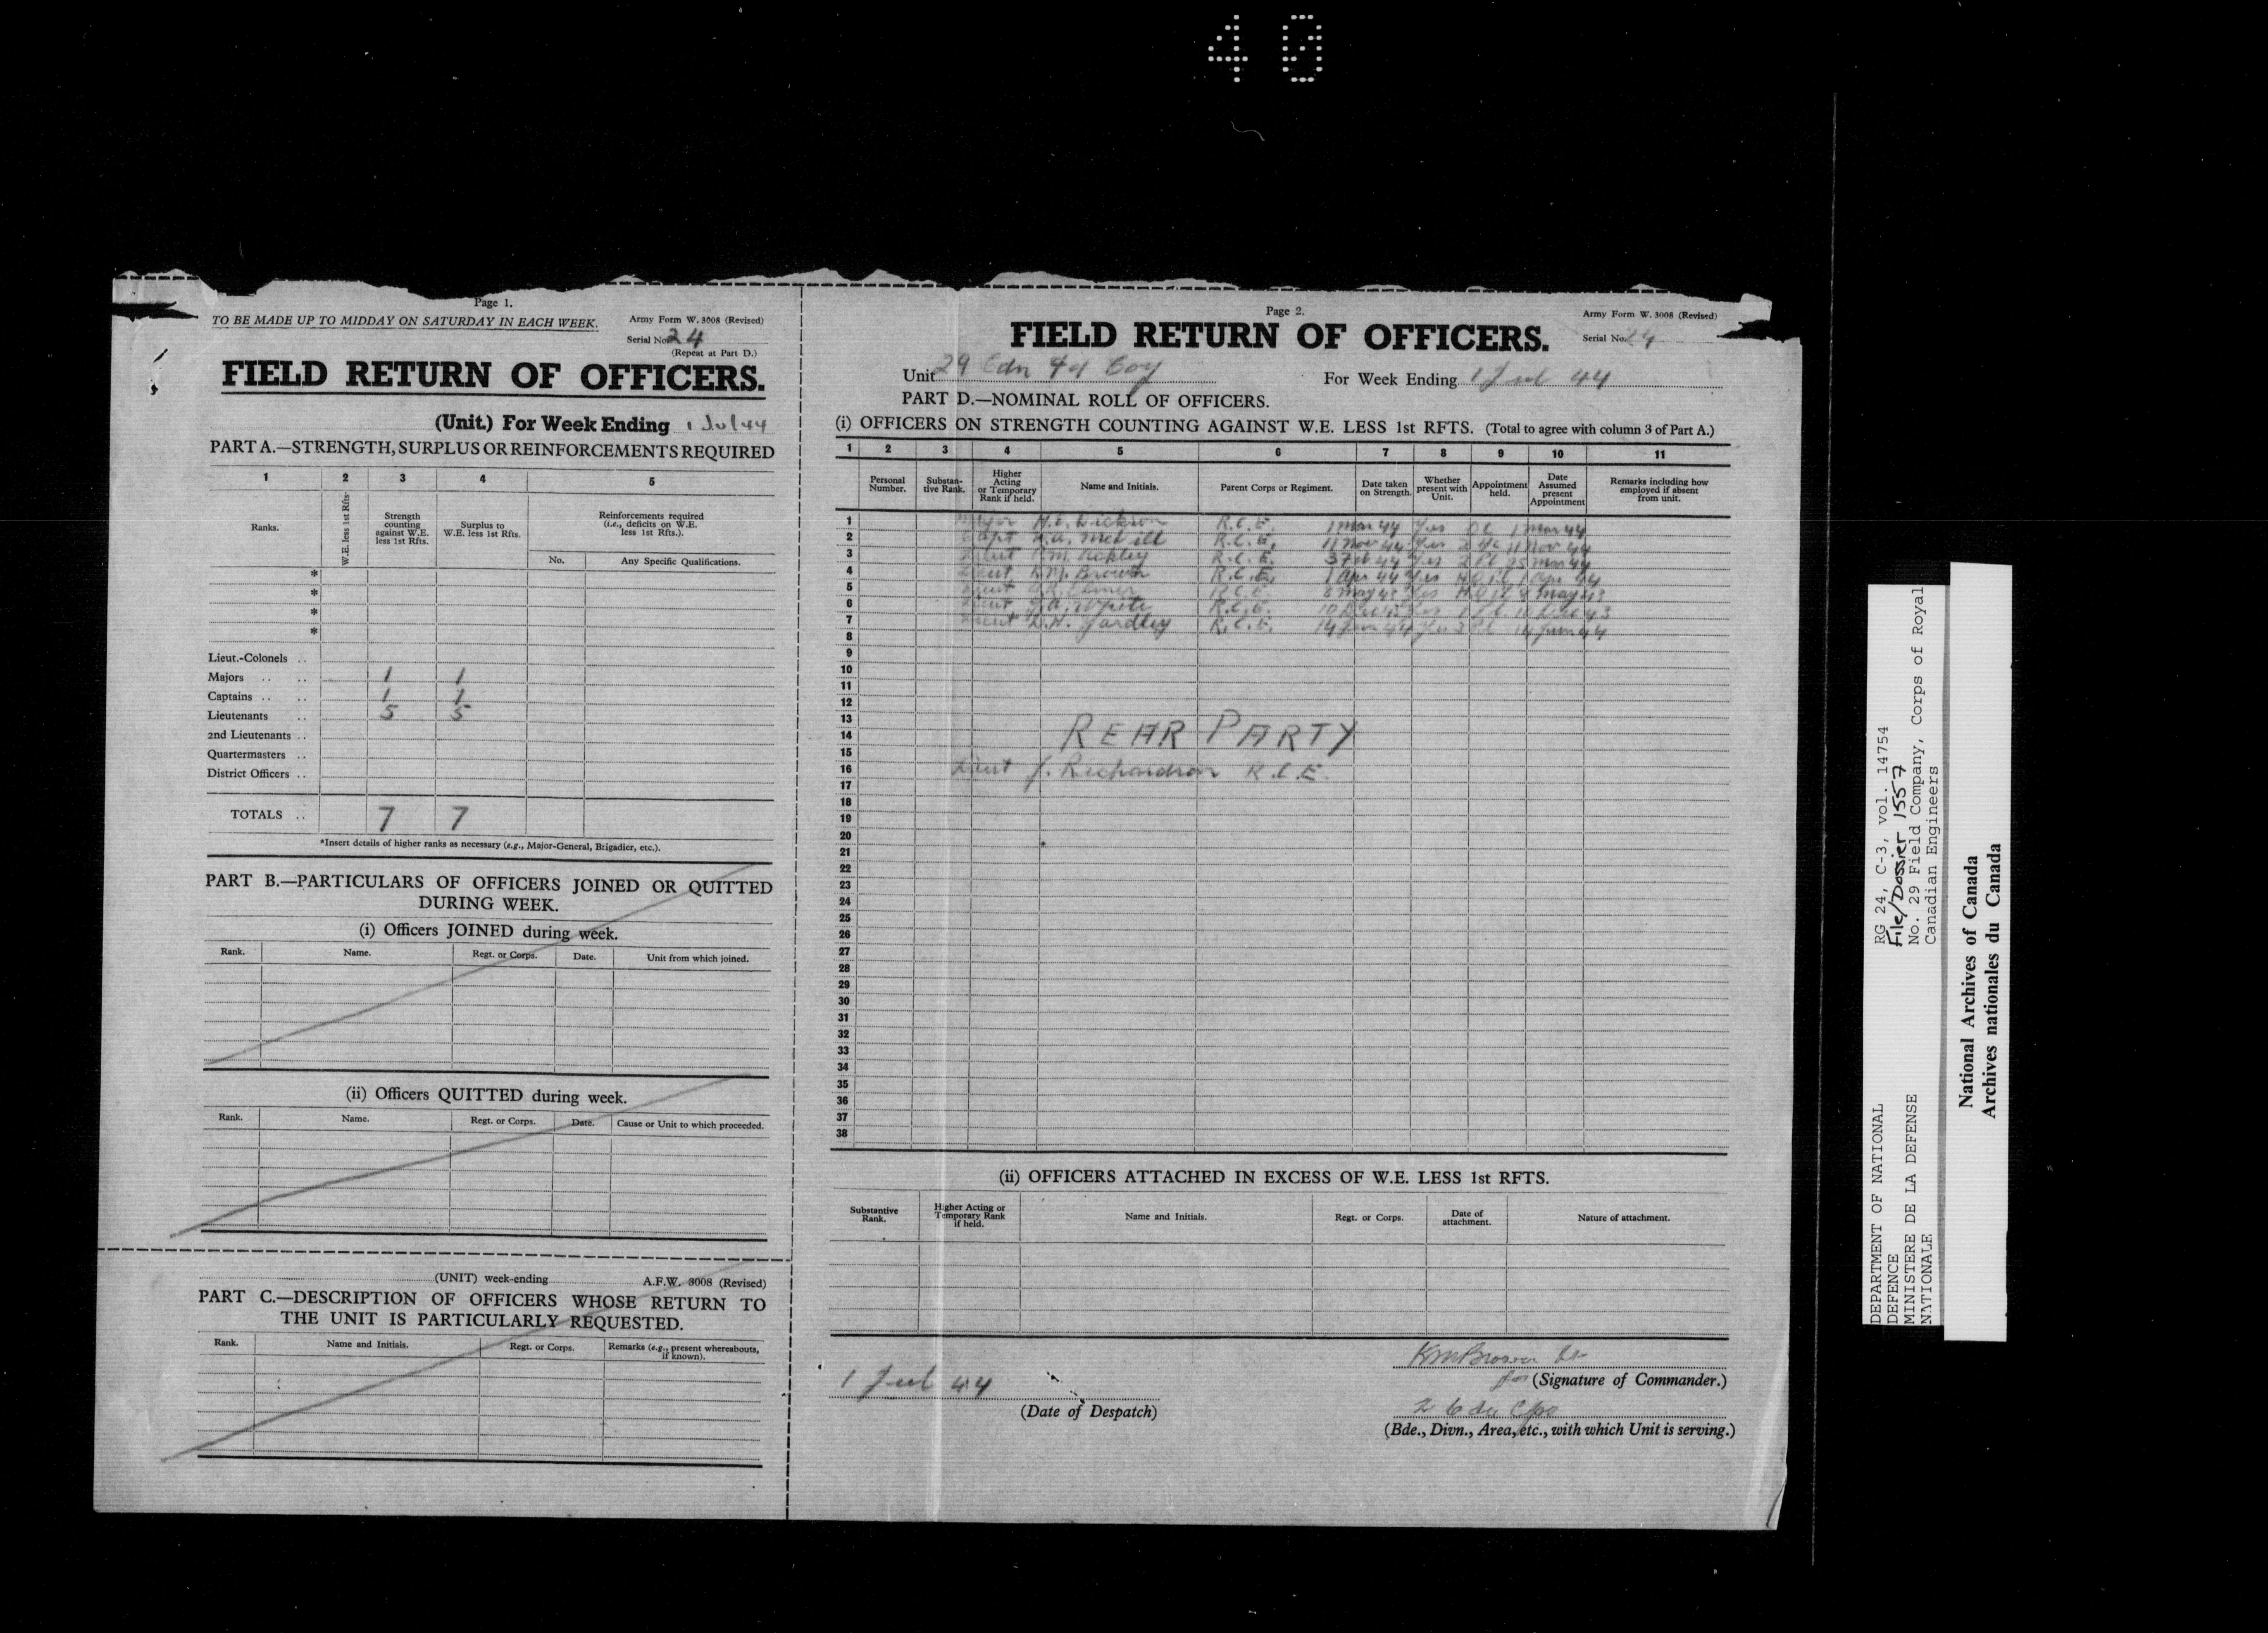 40
Page 1.
TO BE MADE UP TO MIDDAY ON SATURDAY IN EACH WEEK.
Army Form W. 3008 (Revised)
Serial No. 24
(Repeat at Part D.)
FIELD RETURN OF OFFICERS.
(Unit.) For Week Ending 1 Jul 44
PART A.—STRENGTH, SURPLUS OR REINFORCEMENTS REQUIRED
1 2 3 4 5
Ranks.
W.E. less 1st Rfts.
Strength counting against W.E. less 1st Rfts.
Surplus to W.E. less 1st Rfts.
Reinforcements required (i.e., deficits on W.E. less 1st Rfts.).
No. Any Specific Qualifications.
*
*
*
*
Lieut.-Colonels ..
Majors .. .. 1 1
Captains .. .. 1 1
Lieutenants .. 5 5
2nd Lieutenants ..
Quartermasters ..
District Officers ..
TOTALS .. 7 7
*Insert details of higher ranks as necessary (e.g., Major-General, Brigadier, etc.).
PART B.—PARTICULARS OF OFFICERS JOINED OR QUITTED
DURING WEEK.
(i) Officers JOINED during week.
Rank. Name. Regt. or Corps. Date. Unit from which joined.
(ii) Officers QUITTED during week.
Rank. Name. Regt. or Corps. Date. Cause or Unit to which proceeded.
(UNIT) week-ending A.F.W. 3008 (Revised)
PART C.—DESCRIPTION OF OFFICERS WHOSE RETURN TO
THE UNIT IS PARTICULARLY REQUESTED.
Rank. Name and Initials. Regt. or Corps. Remarks (e.g., present whereabouts, if known).
Page 2.
Army Form W. 3008 (Revised)
FIELD RETURN OF OFFICERS.
Serial No. 24
Unit 29 Cdn Fd Coy For Week Ending 1 Jul 44
PART D.—NOMINAL ROLL OF OFFICERS.
(i) OFFICERS ON STRENGTH COUNTING AGAINST W.E. LESS 1st RFTS. (Total to agree with column 3 of Part A.)
1 2 3 4 5 6 7 8 9 10 11
Personal Number.
Substantive Rank.
Higher Acting or Temporary Rank if held.
Name and Initials.
Parent Corps or Regiment.
Date taken on Strength.
Whether present with Unit.
Appointment held.
Date Assumed present Appointment
Remarks including how employed if absent from unit.
1 Major Dickson R.C.E. 1 Mar 44 Yes OC 1 Mar 44
2 Capt R.C.E. 11 Nov 44 Yes 2 i/c 11 Nov 44
3 Lieut R.C.E. 3 Feb 44 Yes 2 Pl 25 Mar 44
4 Lieut K.M. Brown R.C.E. 1 Apr 44 Yes H.Q. Pl 1 Apr 44
5 Lieut R.C.E. May 43 Yes May 43
6 Lieut White R.C.E. 10 Dec 43 Yes 1 Pl. 10 Dec 43
7 Lieut Yardley R.C.E. 14 Jun 44 Yes 3 Pl 14 Jun 44
8
9
10
11
12
13
14 REAR PARTY
15
16 Lieut J. Richardson R.C.E.
17
18
19
20
21
22
23
24
25
26
27
28
29
30
31
32
33
34
35
36
37
38
(ii) OFFICERS ATTACHED IN EXCESS OF W.E. LESS 1st RFTS.
Substantive Rank.
Higher Acting or Temporary Rank if held.
Name and Initials.
Regt. or Corps.
Date of attachment.
Nature of attachment.
KM Brown Lt
for (Signature of Commander.)
1 Jul 44
(Date of Despatch)
(Bde., Divn., Area, etc., with which Unit is serving.)
DEPARTMENT OF NATIONAL RG 24, C-3, vol. 14754
DEFENCE File/Dossier 1557
MINISTERE DE LA DEFENSE No. 29 Field Company, Corps of Royal
NATIONALE Canadian Engineers
National Archives of Canada
Archives nationales du Canada